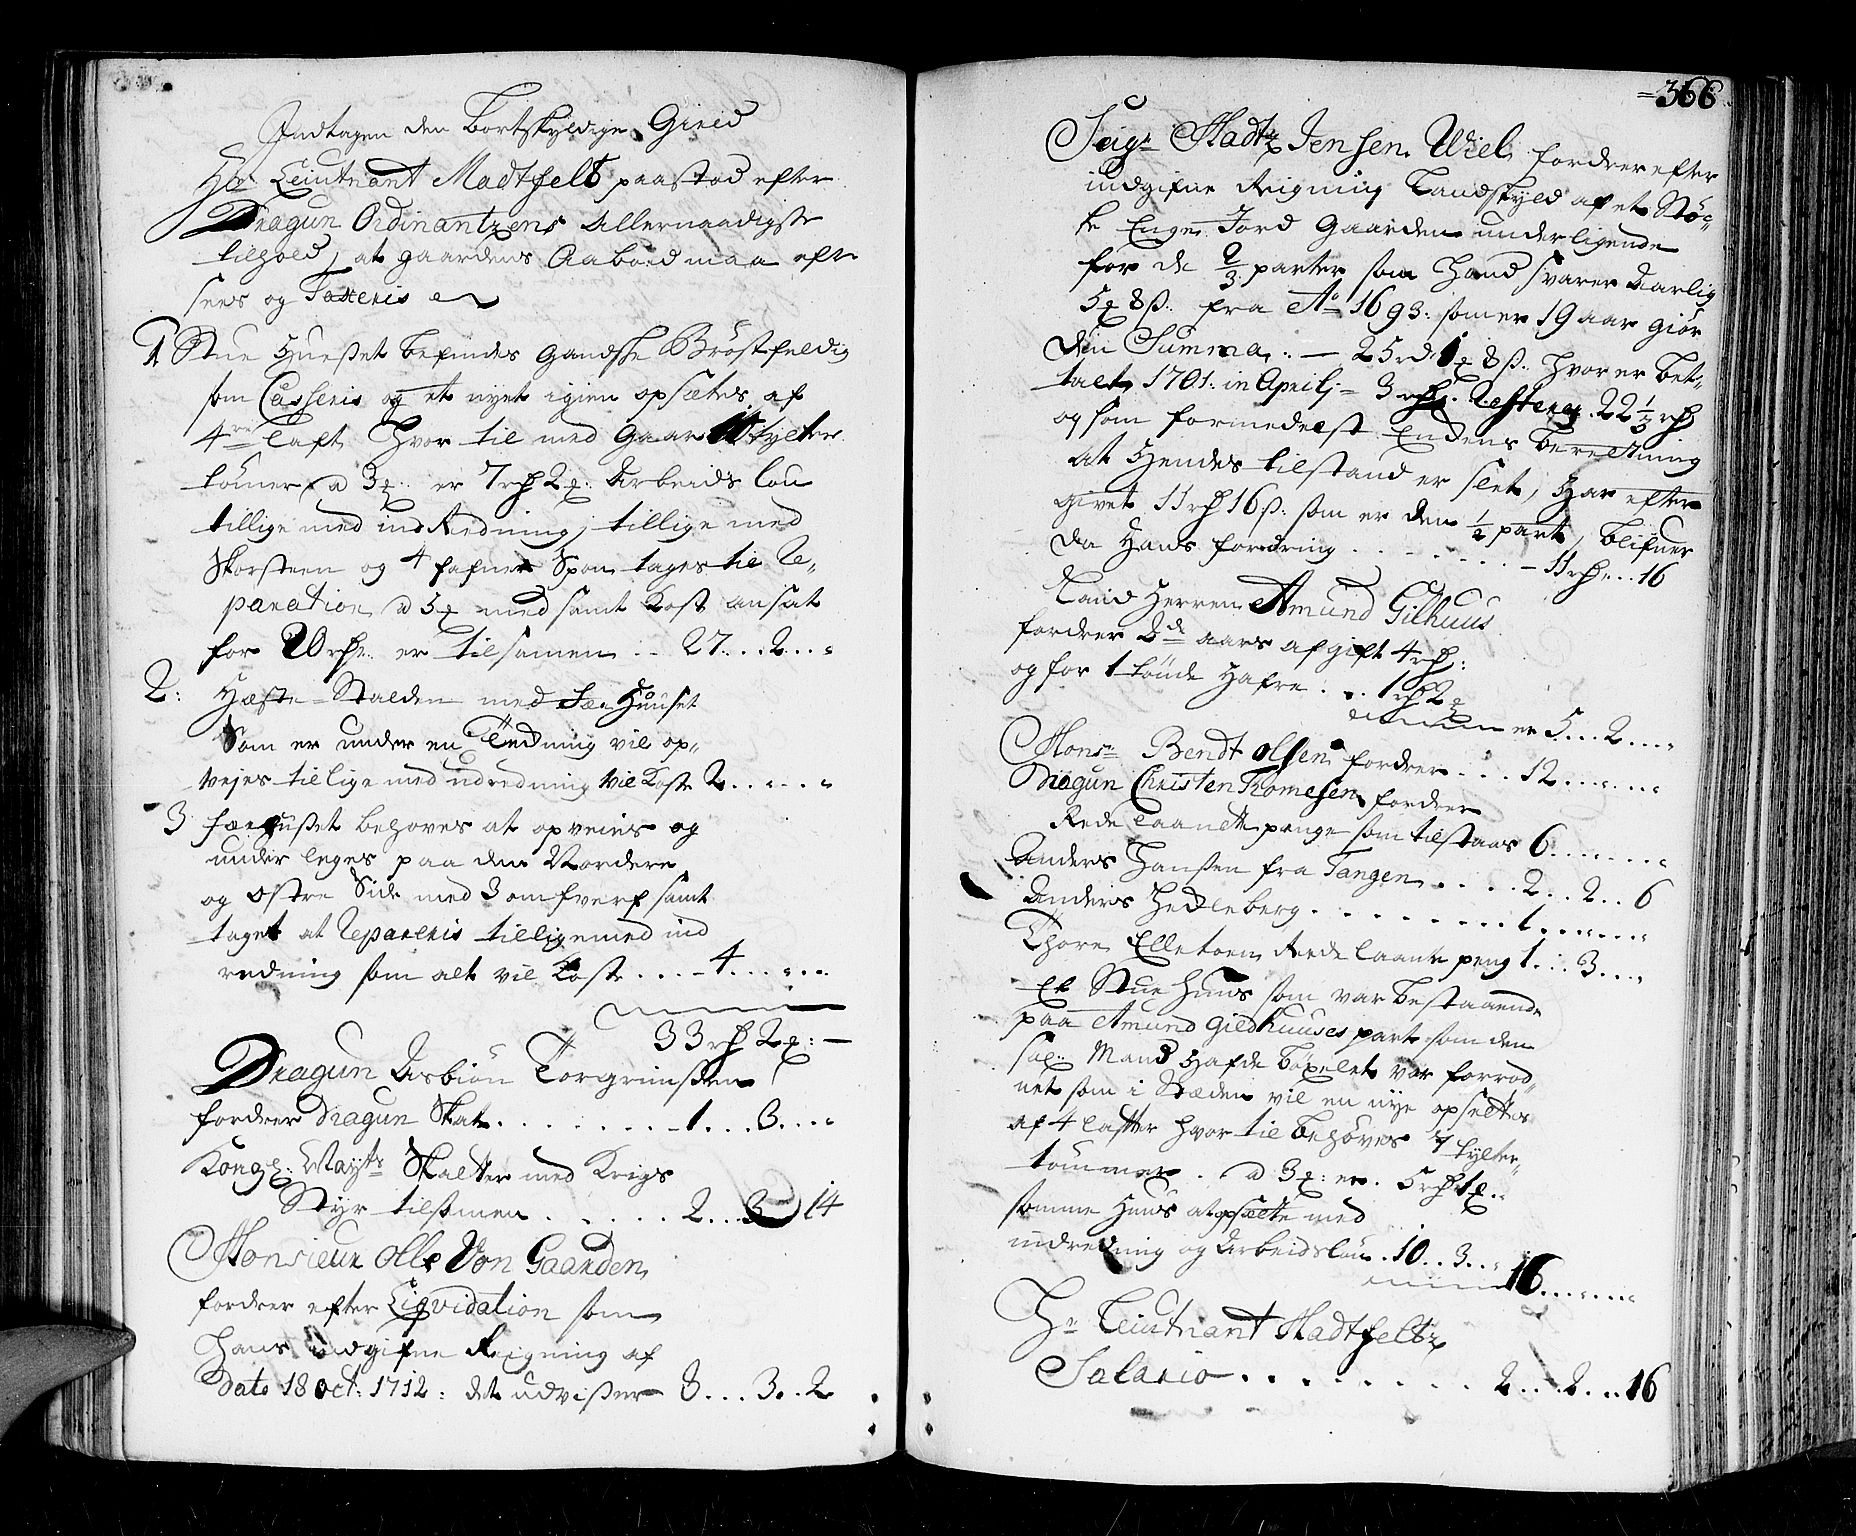 Indtagen den Bortskyldige Gield
Hr. Leiutnant Madtfelt paastod efter
Dragun Ordinantzens Allernaadigste
tilhold, at gaardens Aaboed maa efter
sees og Taxeris
1 Stue Huuset befindes gandske Bröstfeldig
som Casseris og et nyet igien opsættes af
4re laft Hvor til med gaar 10 tylter
tömer a 3 er 7 rh 2 Arbeids lön
tillige med ind Redning, tillige med
Skorsteen og 4 fafner Spon tages til Re-
paration a 5 med samt Kost ansat
for 20 rh: er tilsamen .. 27...2...
2: Hæste-Stalden med Fæe Huuset
Som er under en Tedning vil op-
vejes tillige med udredning vil Koste 2......
3 Fæehuset behoves at opveies og
under leges paa den Nordere
og Østre Side med 3 omfverf samt
taget at Repareris tilligemed ind
redning som alt vil Koste ....4......
33 rh 2 : —
Dragun Asbiön Torgrimsen
fordrer Dragun Skat .......1...3....
Kongl: Mayts Skatter med Krigs
Styr tilsamen ...... 2...3..14
Monsieur Olle Von Gaarden
fordrer efter Liqvidation som
Hans indgifne Reigning af
Dato 18 Oct: 1712: det udviser 8...3..2
=366
Seigr Madtz Jensen Wiel fordrer efter
indgifne Reigning Landskyld af et Stö-
ke Enge Jord Gaarden underligende
for de 2/3 parter som Hand svarer Aarlig
5 8 ß: fra Ao 1693: som er 19 aar giör
den Summa: — 25 rd 1 8 ß: hvor er bet-
talt 1701: in Aprilj = 3 rh Resterer 22 1/3 rh
og som formedelst Enckens beretning
at Hendes tilstand er slet, Har efter
givet 11 rh 16 ß: som er den 1/2 part, blifuer
da Hans fordring ........ 11 rh...16
Land Herren Amund Gilhuus
fordrer 2de aars afgift 4 rh:
og for 1 tönde Hafre ... 1 rh 2
er 5...2....
Monsr Bendt Olsen fordrer .... 12.......
Dragun Christen Tomesen fordrer
Rede laante penge som tilstaas 6.......
Anders Hansen fra Tangen .... 2..2..6
Anders Hedleberg ......... 1.......
Thore Elletoen Rede laante peng 1...3....
Et Stue Huus som var bestaaende
paa Amund Gildhuuses part som den
Sal: Mand Hafde böxelet var forrod-
net som i Stæden vil en nye opsettes
af 4 lafter hvor til behöves 7 tylter
tömmer a 3 : er 5 rh 1
samme Huus at opsætte med
indredning og Arbeidslön .10..3..
16......
Hr Leiutnant Madtfeltz
Salario ........ 2...2...16